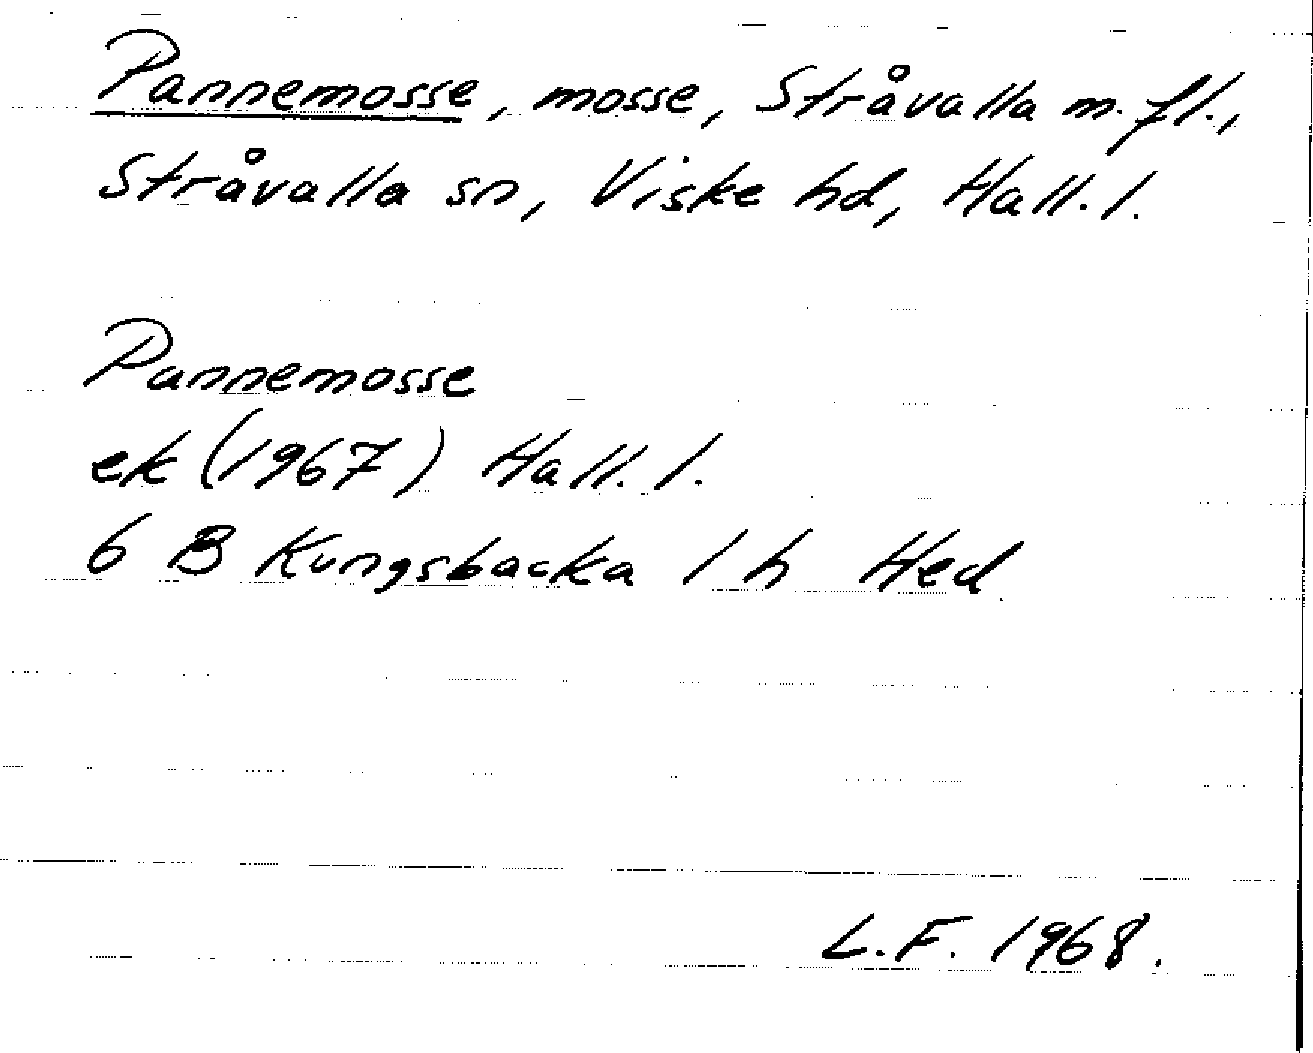 Pannemosse, mosse, Stråvalla m. fl.,
Stråvalla sn, Viske hd, Hall. l.
Pannemosse
ek (1967) Hall. l.
6 B Kungsbacka 1 h Hed
L.F. 1968.